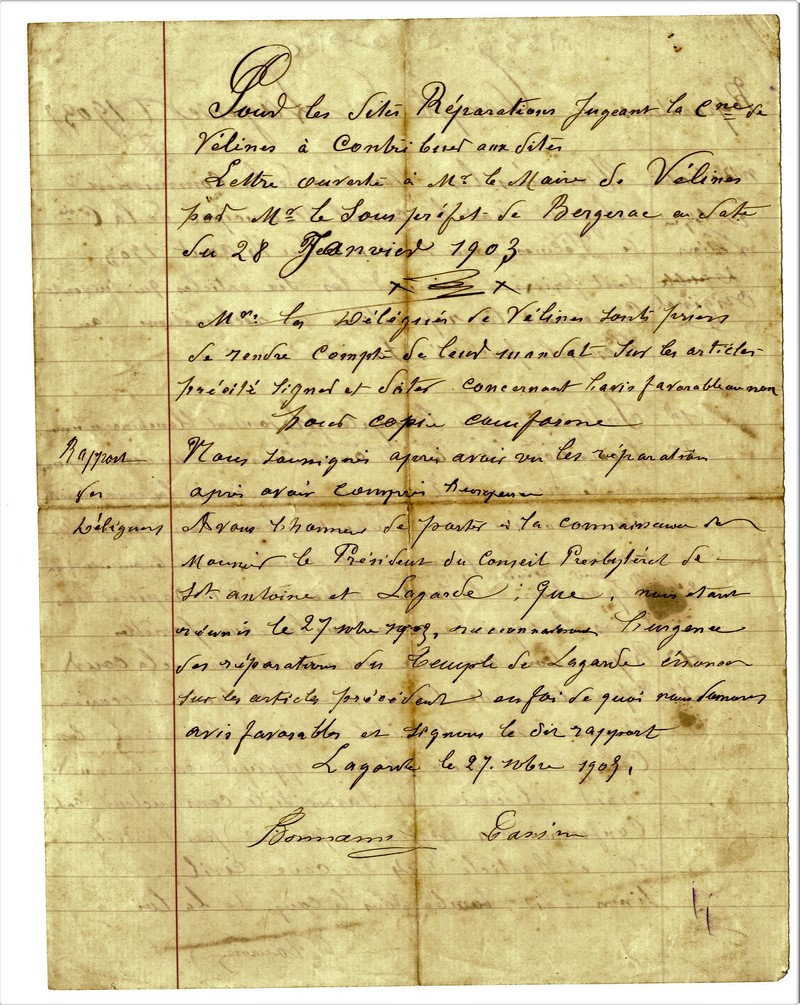 Pour les dites Réparations Jugeant la Cne de
Vélines à Contribuer aux dites
Lettre ouverte à Mr le Maire de Vélines
par Mr le Sous préfet de Bergerac en date
du 28 Janvier 1903
Mrs les Délégués de Vélines sont priers
de rendre compte de leur mandat sur les articles
précité signer et dater concernant l'avis favorable ou non
pour copie comforme
Rapport
des
Déléguers
Nous soussignés après avoir vu les réparation
après avoir compris
Avons l'honneur de porter à la connaissance de
Monsieur le Président du Conseil Presbytéral de
St. antoine et Lagarde ; que, nous étant
réunis le 27 xbre 1903, reconnaissons l'urgence
des réparations du Temple de Lagarde énoncer
sur les articles précédent en foi de quoi nous donnons
avis favorables et signons le dit rapport
Lagarde le 27. xbre 1903.